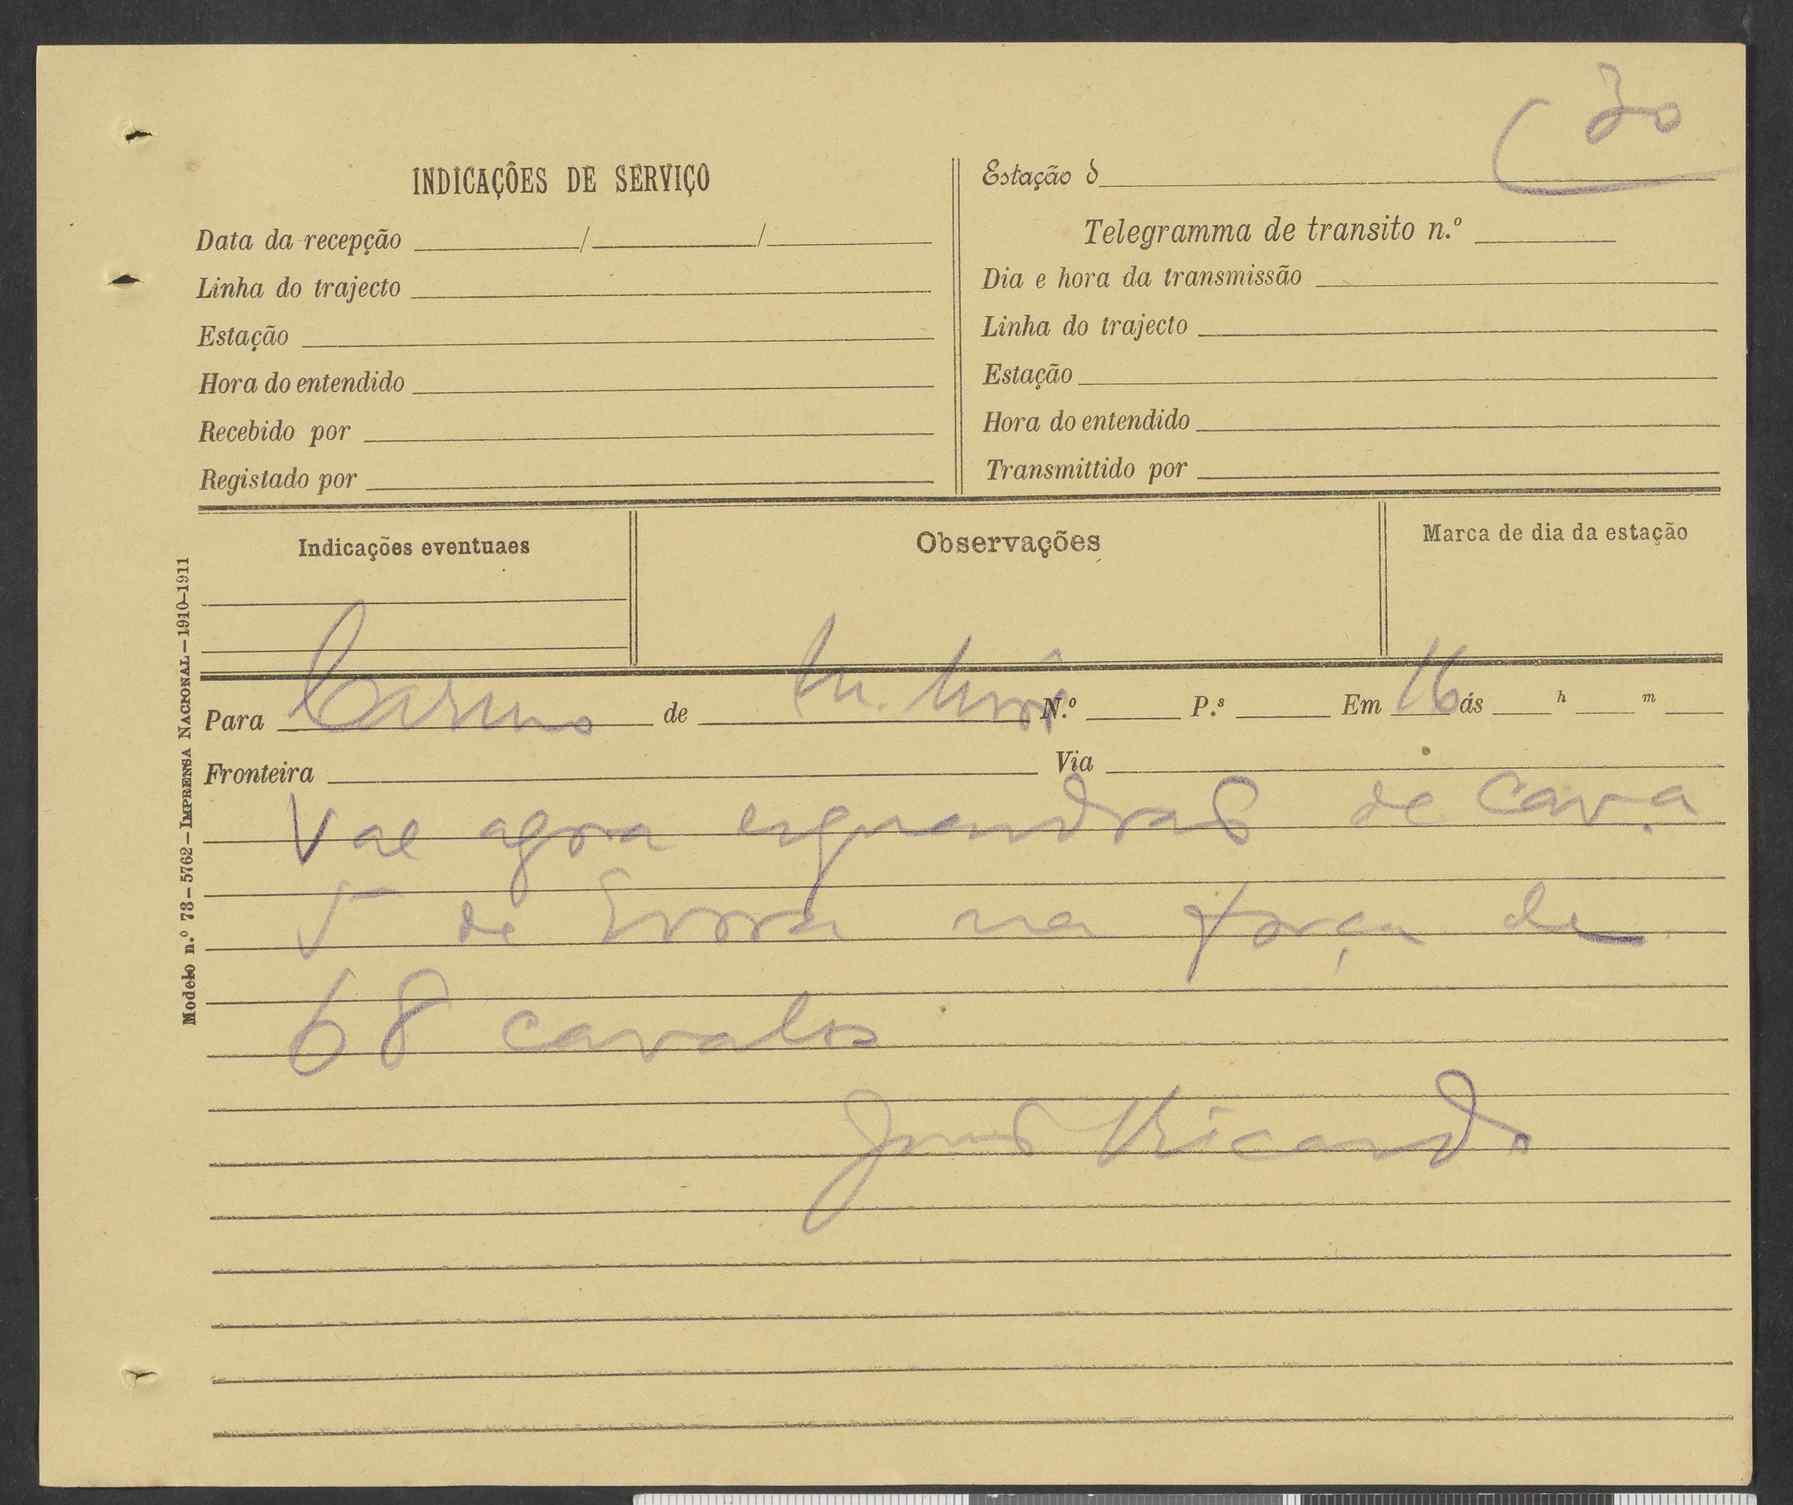 30
INDICAÇÕES DE SERVIÇO
Data da recepção / /
Linha do trajecto
Estação
Hora do entendido
Recebido por
Registado por
Estação d
Telegramma de transito n.º
Dia e hora da transmissão
Linha do trajecto
Estação
Hora do entendido
Transmittido por
Indicações eventuaes
Observações
Marca de dia da estação
Para Carmo de N.º P.s Em 16 ás h m
Fronteira Via
Vae agora esquandras de Cav.a
5 de Evora na força de
68 cavalos
Ricardo
Modelo n.º 73—5762—IMPRENSA NACIONAL—1910-1911